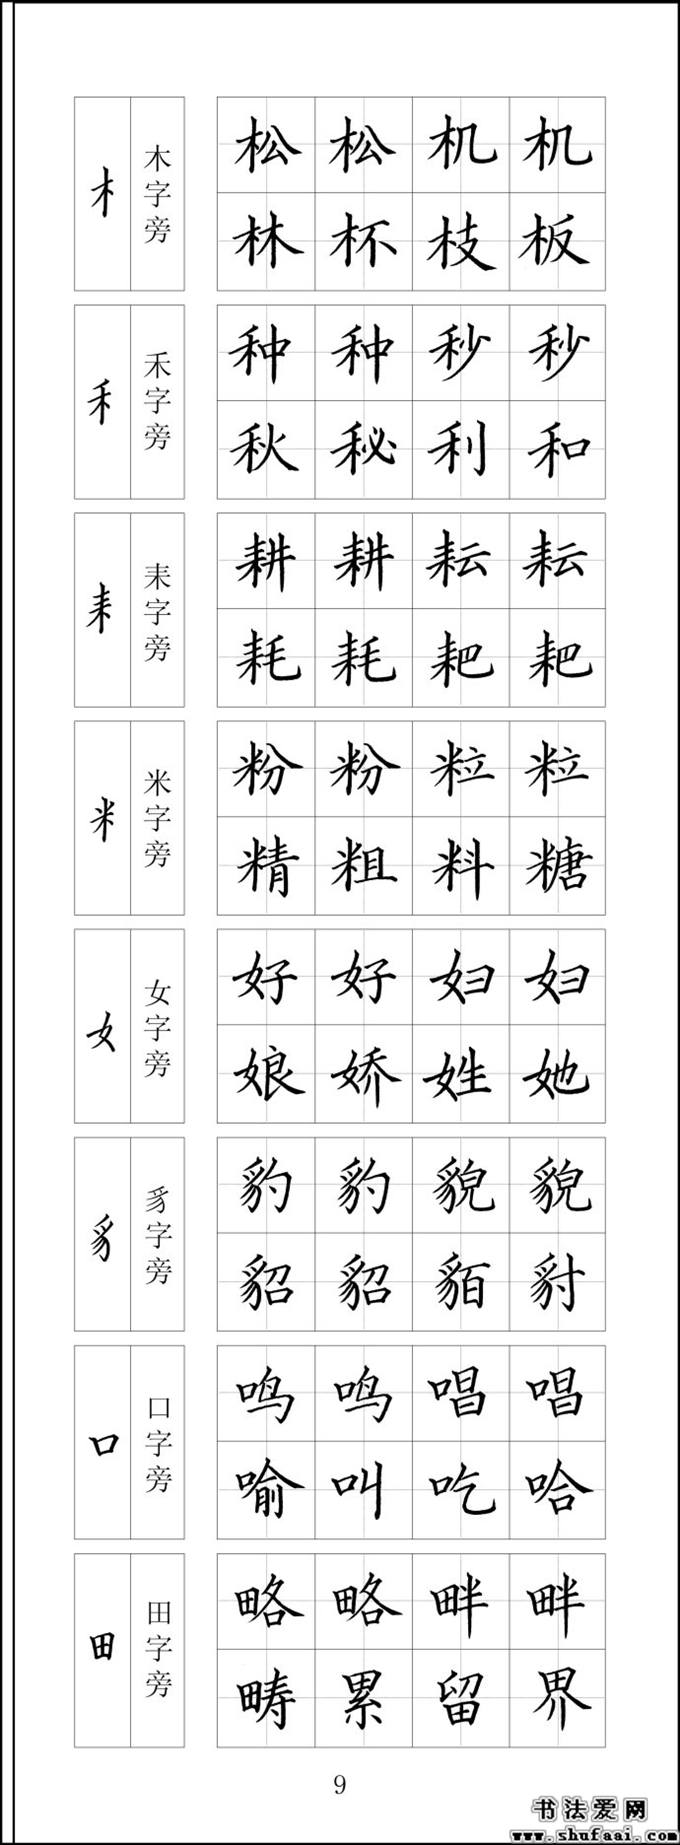 木 木字旁 松松机机
林杯枝板
禾 禾字旁 种种秒秒
秋秘利和
耒 耒字旁 耕耕耘耘
耗耗耙耙
米 米字旁 粉粉粒粒
精粗料糖
女 女字旁 好好妇妇
娘娇姓她
豸 豸字旁 豹豹貌貌
貂貂貊豺
口 口字旁 鸣鸣唱唱
喻叫吃哈
田 田字旁 略略畔畔
畴累留界
9
书法爱网
www.shufaai.com